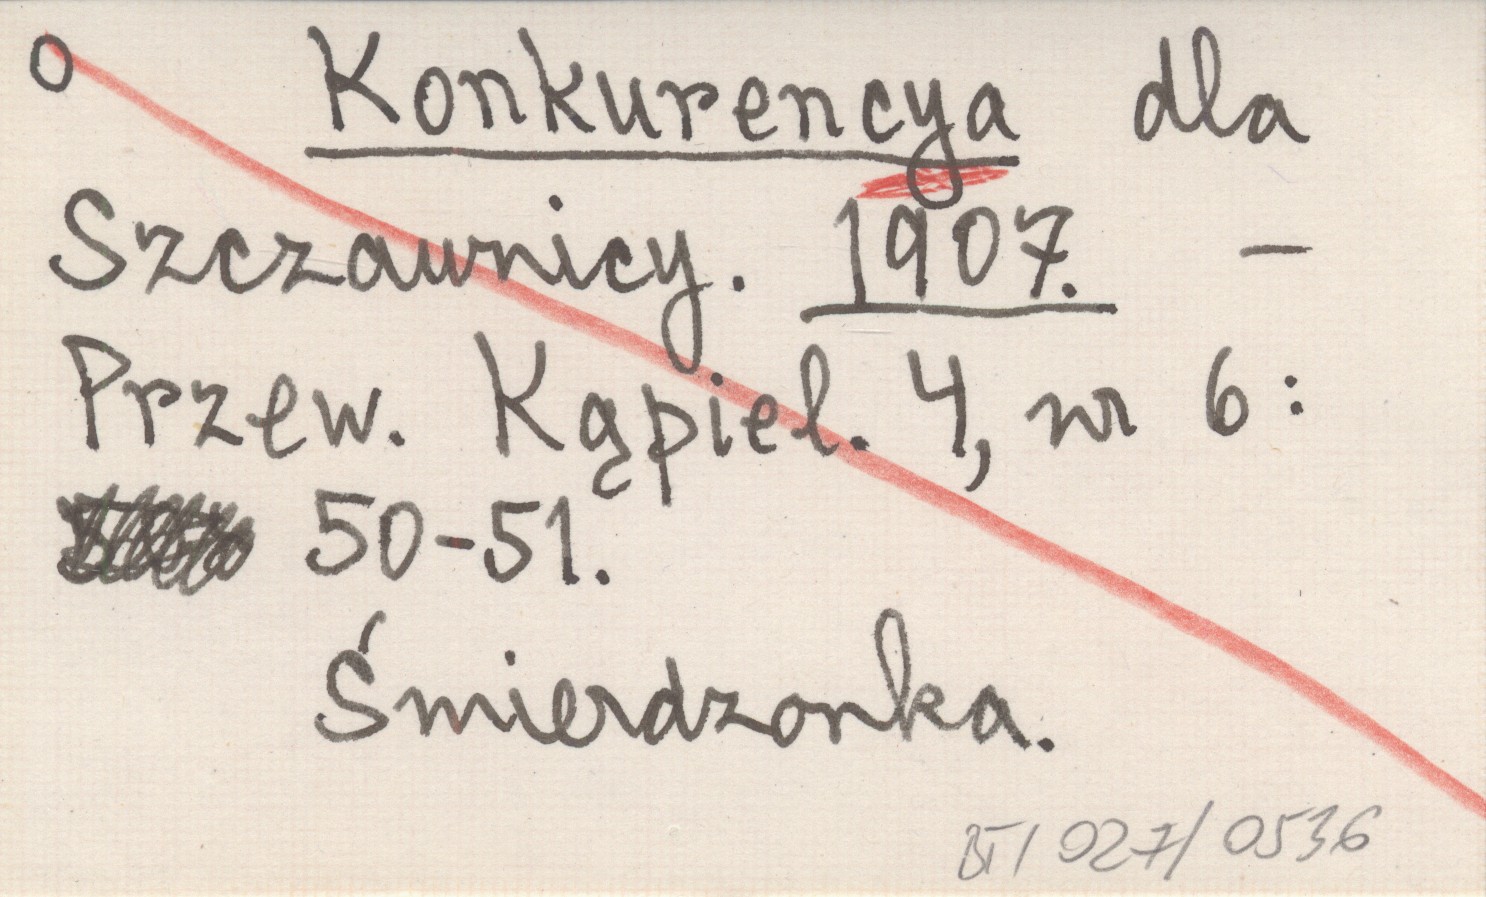 O Konkurencya dla
Szczawnicy. 1907. –
Przew. Kąpiel. 4, nr 6:
50-51.
Śmierdzonka.
BT/ 027/ 0536